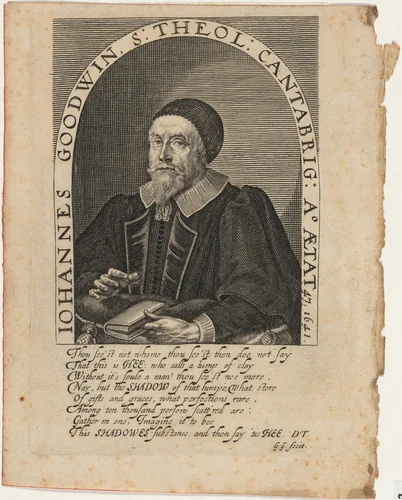 IOHANNES GOODWIN. S: THEOL: CANTABRIG: Aº ÆTAT 47. 1641.
Thou see'st not whome thou see'st then doe not say
That this is HEE: who calls a lump of clay
Without it's soule a man? thou see'st noe more:
Nay, but the SHADOW of that lumpe, What store
Of gifts and graces, what perfections rare,
Among ten thousand persons scatt'red are:
Gather in one, Imagine it to bee
This SHADOWES substance: and then say 'tis HEE. D.T.
G:G: fecit.